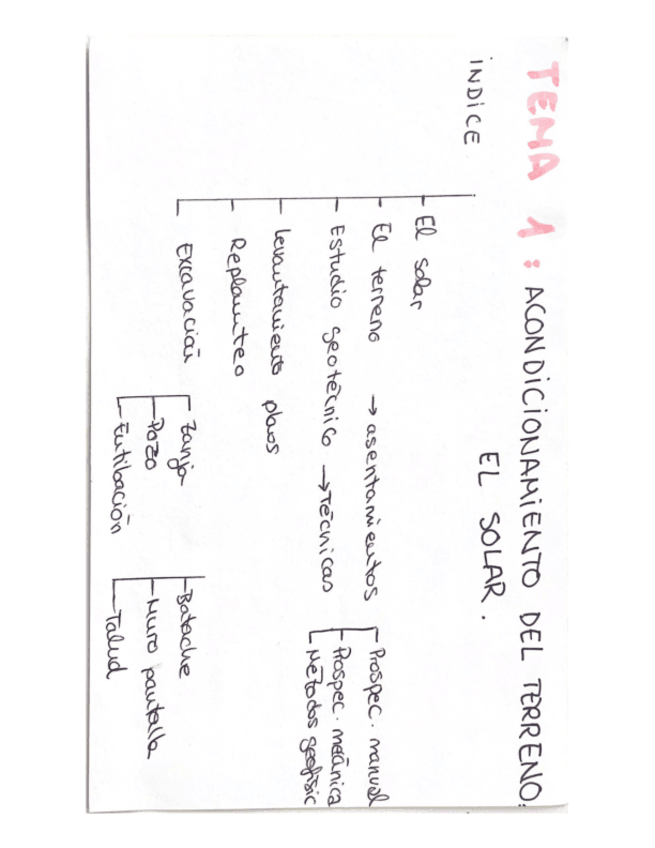 TEMA 1: ACONDICIONAMIENTO DEL TERRENO.
EL SOLAR.
INDICE
El solar
El terreno → asentamientos
Estudio geotécnico → Técnicas
Prospec. manual
Prospec. mecánica
Métodos geofísic
Levantamiento planos
Replanteo
Excavación
Zanja
Pozo
Entibación
Batache
Muro pantalla
Talud